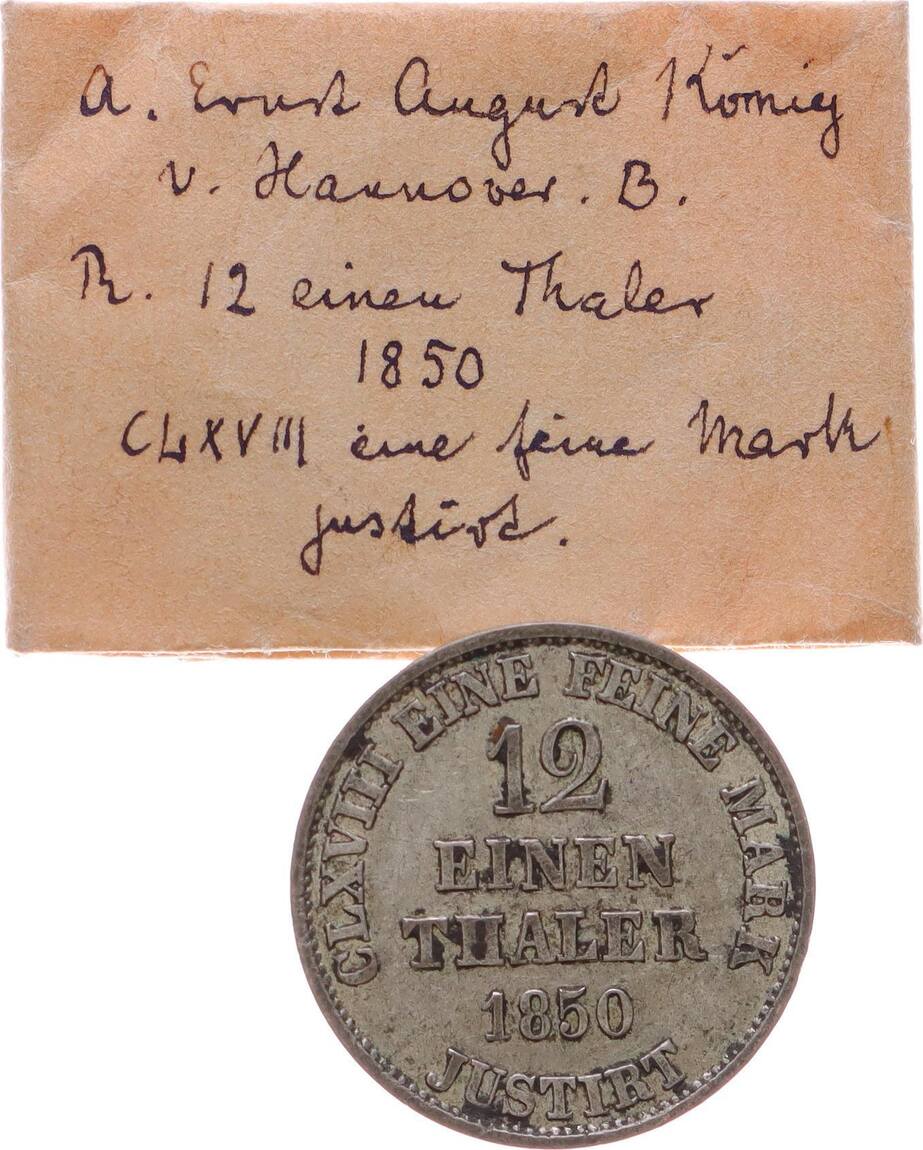 A. Ernst August König
v. Hannover. B.
R. 12 einen Thaler
1850
CLXVIII eine feine Mark
justirt.
CLXVIII EINE FEINE MARK
12
EINEN
THALER
1850
JUSTIRT